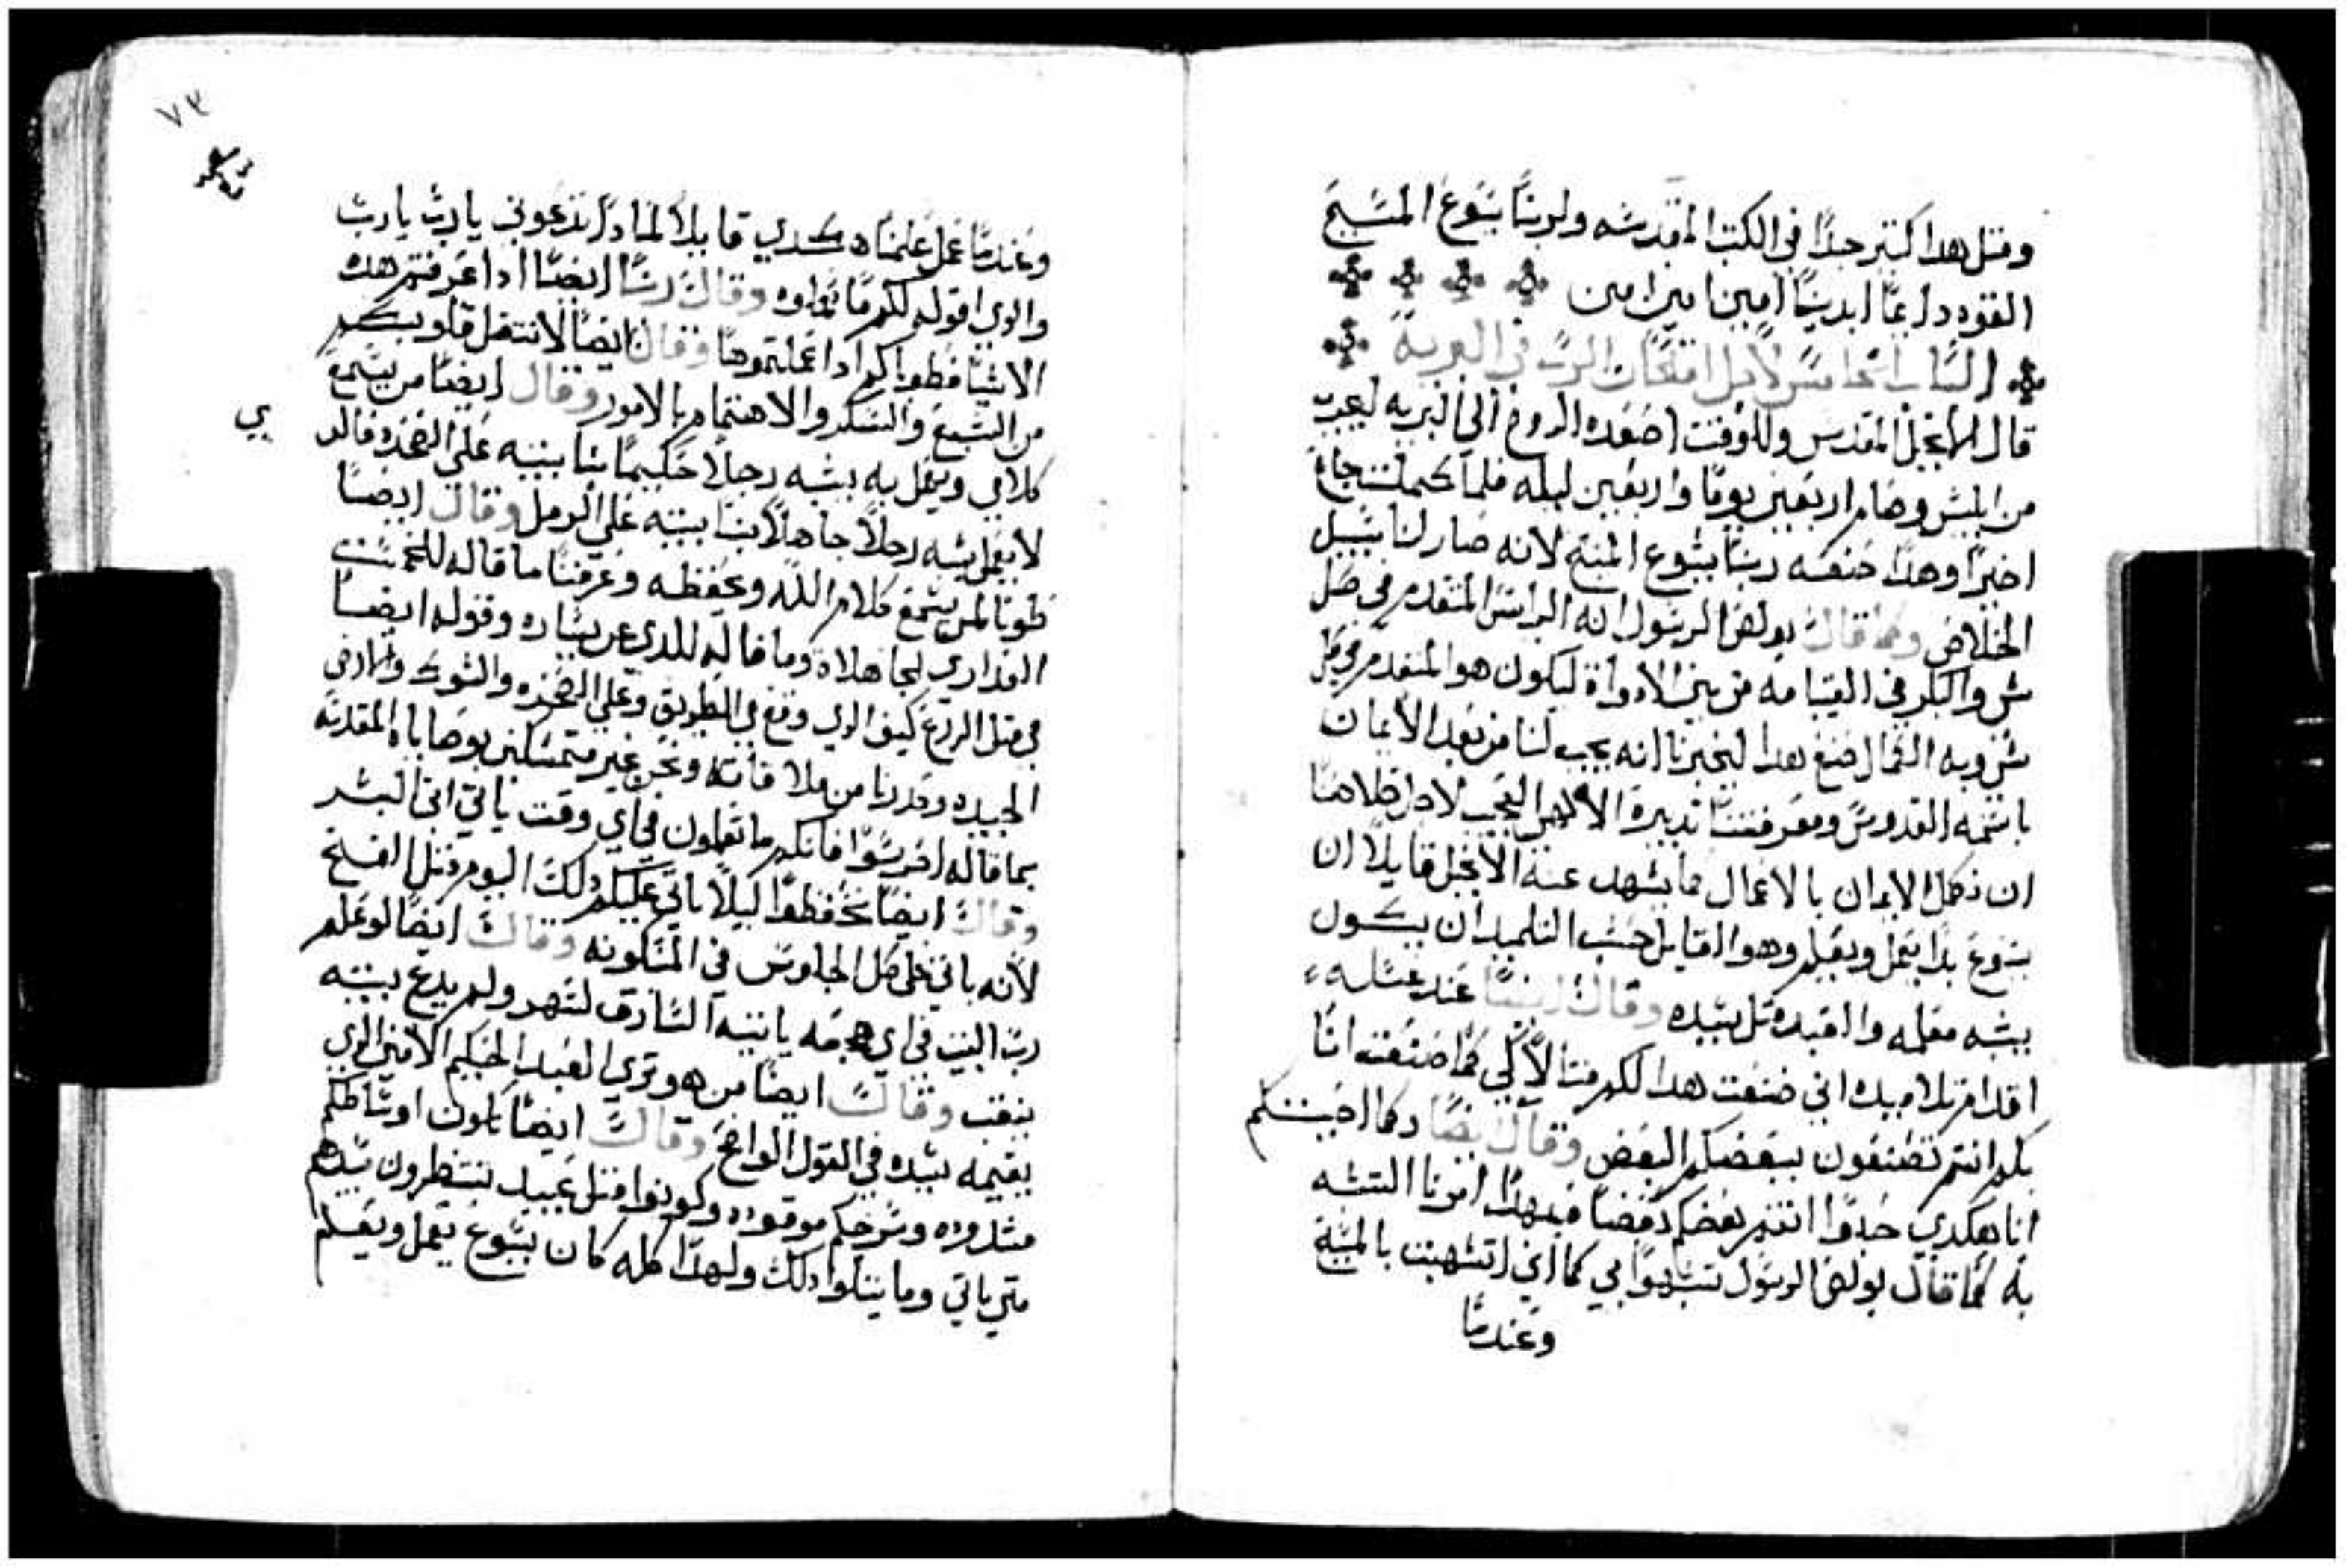 ومثل هدا كتير جدًا في الكتب المقدسه ولربنا يسوع المسيح
القوه دايمًا ابديًا امين امين امين
الباب الخامس لاجل امتحان الرب في البرية
قال الانجيل المقدس وللوقت اصعده الروح الي البريه ليجرب
من ابليس وصام اربعين يومًا واربعين ليله فلما كملت جاع
اخيرًا وهدا صنعه ربنا يسوع المسيح لانه صار لنا سبيل
الخلاص وكما قال بولص الرسول انه الراس المتقدم في كل
شي والبكر في القيامه من بين الاموات ليكون هو المتقدم في كل
شي وبه الكمال صنع هدا ليخبرنا انه يجب لنا من بعد الأيمان
باسمه القدوس ومعرفتنا تدبيره الالاهي العجيب لاجل خلاصنا
ان نكمل الايمان بالاعمال كما يشهد عنه الانجيل قايلًا ان
يسوع بدا يعمل ويعلم وهو القايل حسب التلميد ان يكون
يشبه معلمه والعبد متل سيده وقال ايضًا عند غسله
اقدام تلاميده اني صنعت هدا لكم متالًا لكي كما صنعت انا
بكم انتم تصنعون ببعضكم البعض وقال ايضًا وكما احببتكم
انا هكدي حبوا انتم بعضكم بعضًا فبهدا امرنا التشبه
به كما قال بولص الرسول تشبهوا بي كما اني اتشبهت بالمسيح
وعندما
٧٣
وعندما عمل علمنا هكدي قايلًا لمادا تدعوني يارب يارب
والدي اقوله لكم ما تعملوه وقال ربنا ايضًا ادا عرفتم هده
الاشيا فطوباكم ادا عملتموها وقال ايضًا لا تتقل قلوبكم
من الشبع والسكر والاهتمام بالامور وقال ايضًا من يسمع
كلامي ويعمل به يشبه رجلًا حكيمًا بنا بيته علي الصخره فالدي
لا يعمل يشبه رجلًا جاهلًا بنا بيته علي الرمل وقال ايضًا
طوبا لمن يسمع كلام الله ويحفظه وعرفنا ما قاله للخمس
العداري الجاهلات وما قاله للدي عن يساره وقوله ايضًا
في متل الزرع كيف الدي وقع في الطريق وعلي الصخره والشوك والارض
الجيده وحدرنا من ملاقاته ونحن غير متمسكين بوصاياه المقدسه
بما قاله احرسوا فانكم ما تعلمون في اي وقت ياتي ابن البشر
وقال ايضًا تحفظوا ليلًا ياتي عليكم دلك اليوم متل الفخ
لانه ياتي علي كل الجلوس في المسكونه وقال ايضًا لو علم
رب البيت في اي هجعه ياتيه السارق لسهر ولم يدع بيته
ينقب وقال ايضًا من هو تري العبد الحكيم الامين الدي
يقيمه سيده في القول الواضح وقال ايضًا تكون اوساطكم
مشدوده وسرجكم موقوده وكونوا متل عبيد ينتظرون سيدهم
متي ياتي وما يتلوا دلك ولهدا كله كان يسوع يعمل ويعلم